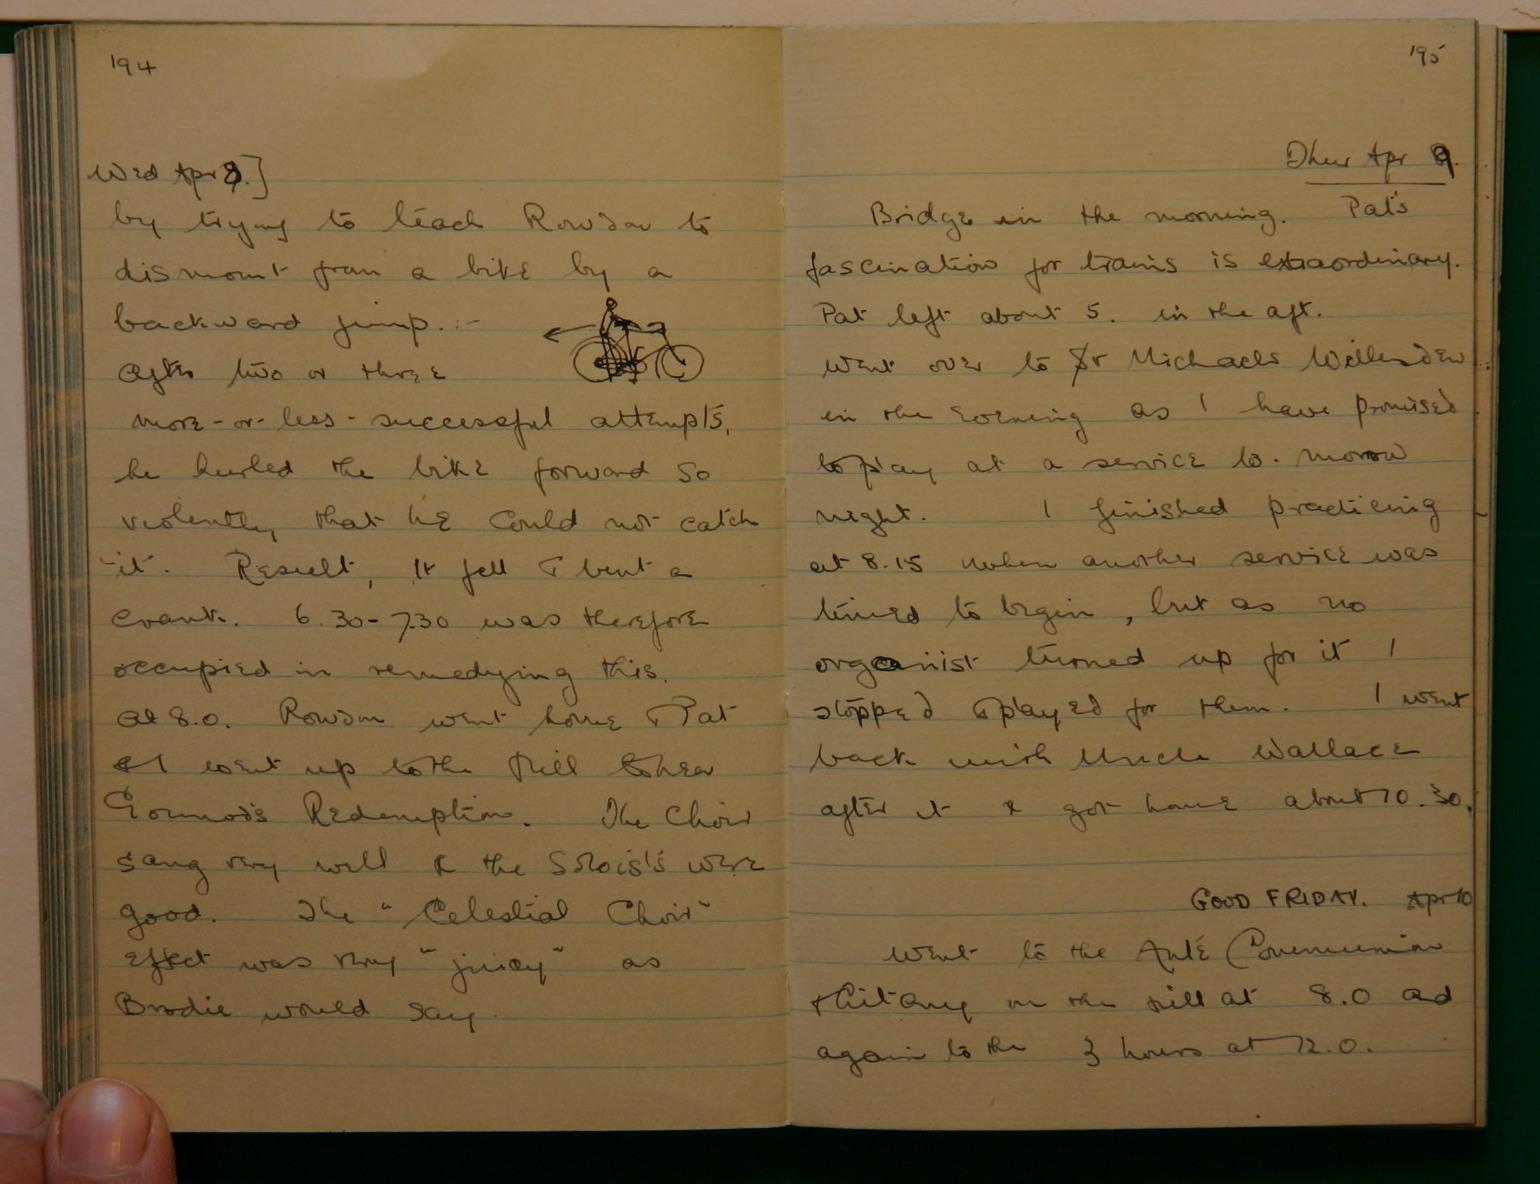 194
Wed Apr 8.]
by trying to teach Rowdon to
dismount from a bike by a
backward jump. :-
After two or three
more-or-less-successful attempts,
he hurled the bike forward so
violently that he could not catch
it. Result, it fell & bent a
crank. 6.30-7.30 was therefore
occupied in remedying this.
At 8.0. Rowdon went home & Pat
& I went up to the Hill to hear
Gounod's Redemption. The Choir
sang very well & the Soloists were
good. The "Celestial Choir"
effect was very "juicy" as
Brodie would say.
195
Thur Apr 9.
Bridge in the morning. Pat's
fascination for trains is extraordinary.
Pat left about 5. in the aft.
Went over to St Michaels Willesden
in the evening as I have promised
to play at a service to-morrow
night. I finished practicing
at 8.15 when another service was
timed to begin, but as no
organist turned up for it I
stopped & played for them. I went
back with Uncle Wallace
after it & got home about 10.30.
GOOD FRIDAY. Apr 10
Went to the Ante Communion
& Litany on the hill at 8.0 and
again to the 3 hours at 12.0.